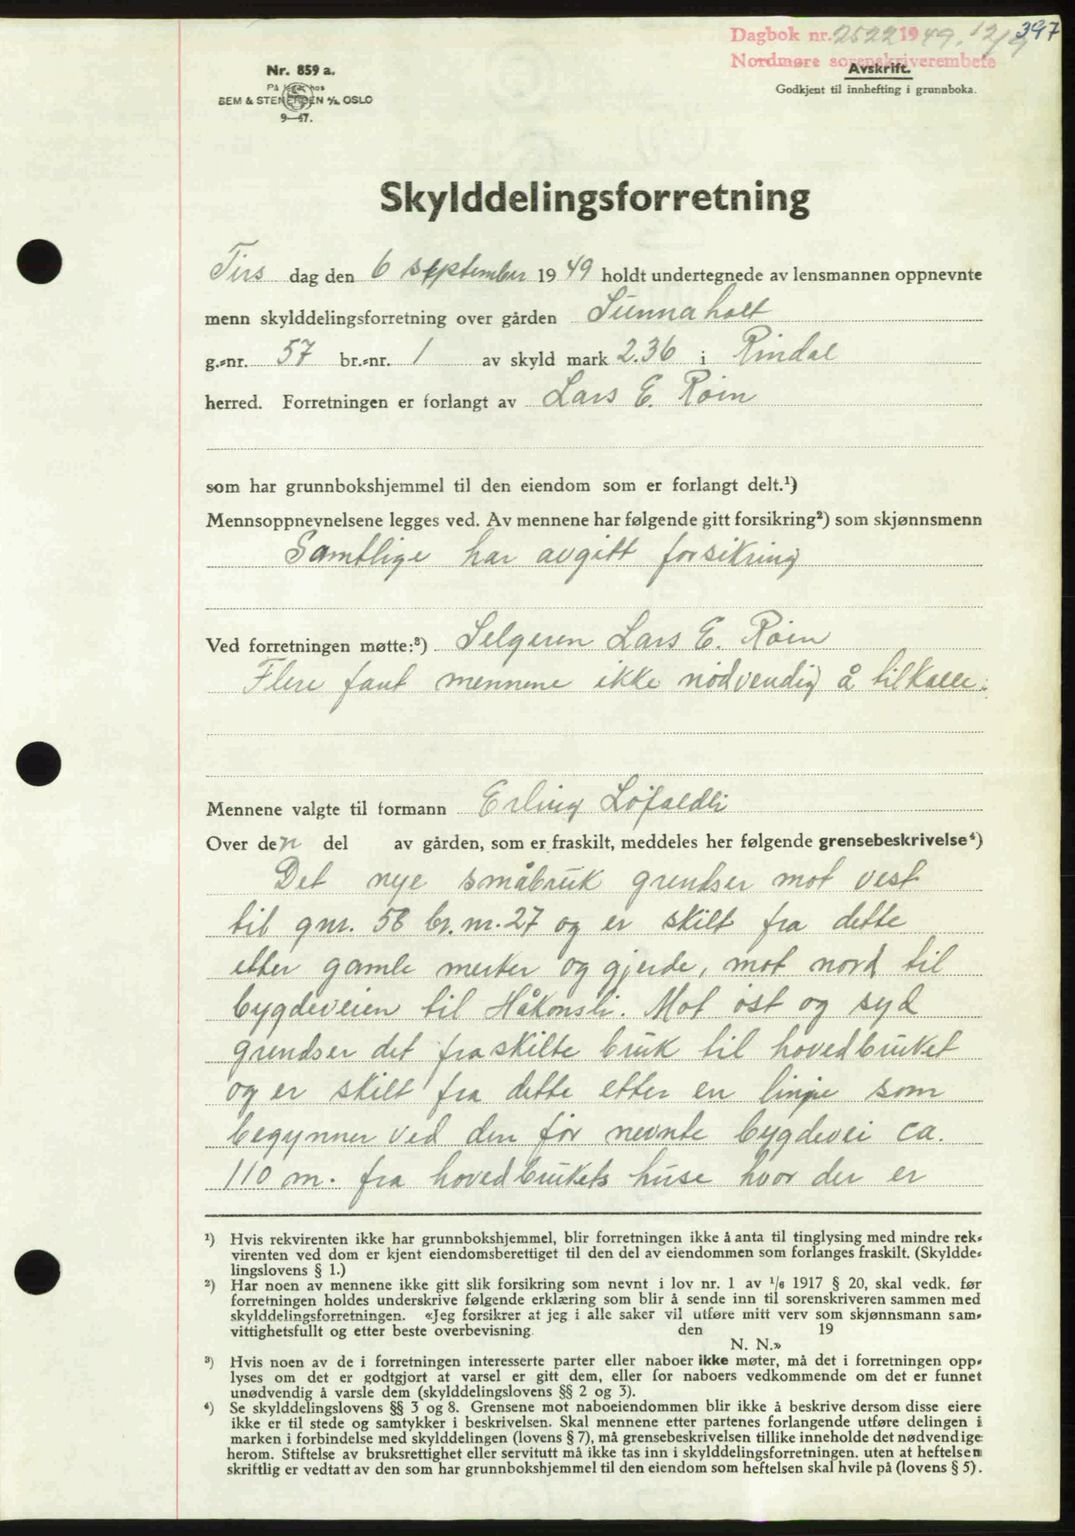 397
Dagbok nr. 2522 1949. 12/9
Nordmøre sorenskriverembete
Nr. 859 a.
På lager hos
SEM & STENERSEN A/S OSLO
9—47.
Avskrift.
Godkjent til innhefting i grunnboka.
Skylddelingsforretning
Tirs dag den 6 september 1949 holdt undertegnede av lensmannen oppnevnte
menn skylddelingsforretning over gården Sunnaholt
g.-nr. 57 br.-nr. 1 av skyld mark 2.36 i Rindal
herred. Forretningen er forlangt av Lars E. Røen
som har grunnbokshjemmel til den eiendom som er forlangt delt.¹)
Mennsoppnevnelsene legges ved. Av mennene har følgende gitt forsikring²) som skjønnsmenn
Samtlige har avgitt forsikring
Ved forretningen møtte:³) Selgeren Lars E. Røen
Flere fant mennene ikke nödvendig å tilkalle.
Mennene valgte til formann Erling Löfaldli
Over den del av gården, som er fraskilt, meddeles her følgende grensebeskrivelse⁴)
Det nye småbruk grendser mot vest
til gnr. 58 br. nr. 27 og er skilt fra dette
etter gamle merker og gjerde, mot nord til
bygdeveien til Håkonsli. Mot öst og syd
grendser det fraskilte bruk til hovedbruket
og er skilt fra dette etter en linje som
begynner ved den för nevnte bygdevei ca.
110 m. fra hovedbrukets huse hvor der er
¹) Hvis rekvirenten ikke har grunnbokshjemmel, blir forretningen ikke å anta til tinglysing med mindre rek-
virenten ved dom er kjent eiendomsberettiget til den del av eiendommen som forlanges fraskilt. (Skyldde-
lingslovens § 1.)
²) Har noen av mennene ikke gitt slik forsikring som nevnt i lov nr. 1 av ¹/₆ 1917 § 20, skal vedk. før
forretningen holdes underskrive følgende erklæring som blir å sende inn til sorenskriveren sammen med
skylddelingsforretningen. «Jeg forsikrer at jeg i alle saker vil utføre mitt verv som skjønnsmann sam-
vittighetsfullt og etter beste overbevisning. den 19
N. N.»
³) Hvis noen av de i forretningen interesserte parter eller naboer ikke møter, må det i forretningen opp-
lyses om det er godtgjort at varsel er gitt dem, eller for naboers vedkommende om det er funnet
unødvendig å varsle dem (skylddelingslovens §§ 2 og 3).
⁴) Se skylddelingslovens §§ 3 og 8. Grensene mot naboeiendommen blir ikke å beskrive dersom disse eiere
ikke er til stede og samtykker i beskrivelsen. Skal mennene etter partenes forlangende utføre delingen i
marken i forbindelse med skylddelingen (lovens § 7), må grensebeskrivelsen tillike inneholde det nødvendige
herom. Stiftelse av bruksrettighet eller servitutt må ikke tas inn i skylddelingsforretningen, uten at heftelsen
skriftlig er vedtatt av den som har grunnbokshjemmel til den eiendom som heftelsen skal hvile på (lovens § 5).